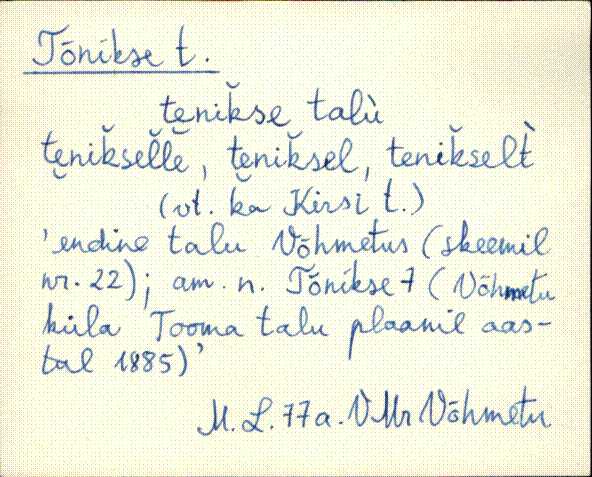 Tõnikse t.
tenik̆se talù
tenik̆sel̆l̆ĕ, tenik̆sel, tenik̆selt̀
(vt. ka Kirsi t.)
'endine talu Võhmetus (skeemil
nr. 22); am. n. Tõnikse 7 (Võhmetu
küla Tooma talu plaanil aas-
tal 1885)'
M. L. 77a. VMr Võhmetu